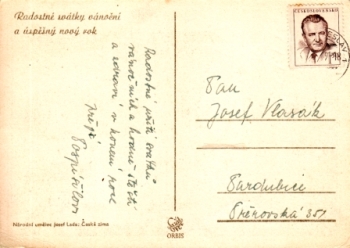 Radostné svátky vánoční
a úspěšný nový rok
Radostné prožití svátků
vánočních a hodně štěstí
a zdraví v novém roce
přejí
Pospíšilovi
Národní umělec Josef Lada: Česká zima
ORBIS
ČESKOSLOVENSKO
Pan
Josef Vlasák
Pardubice
Přerovská 351